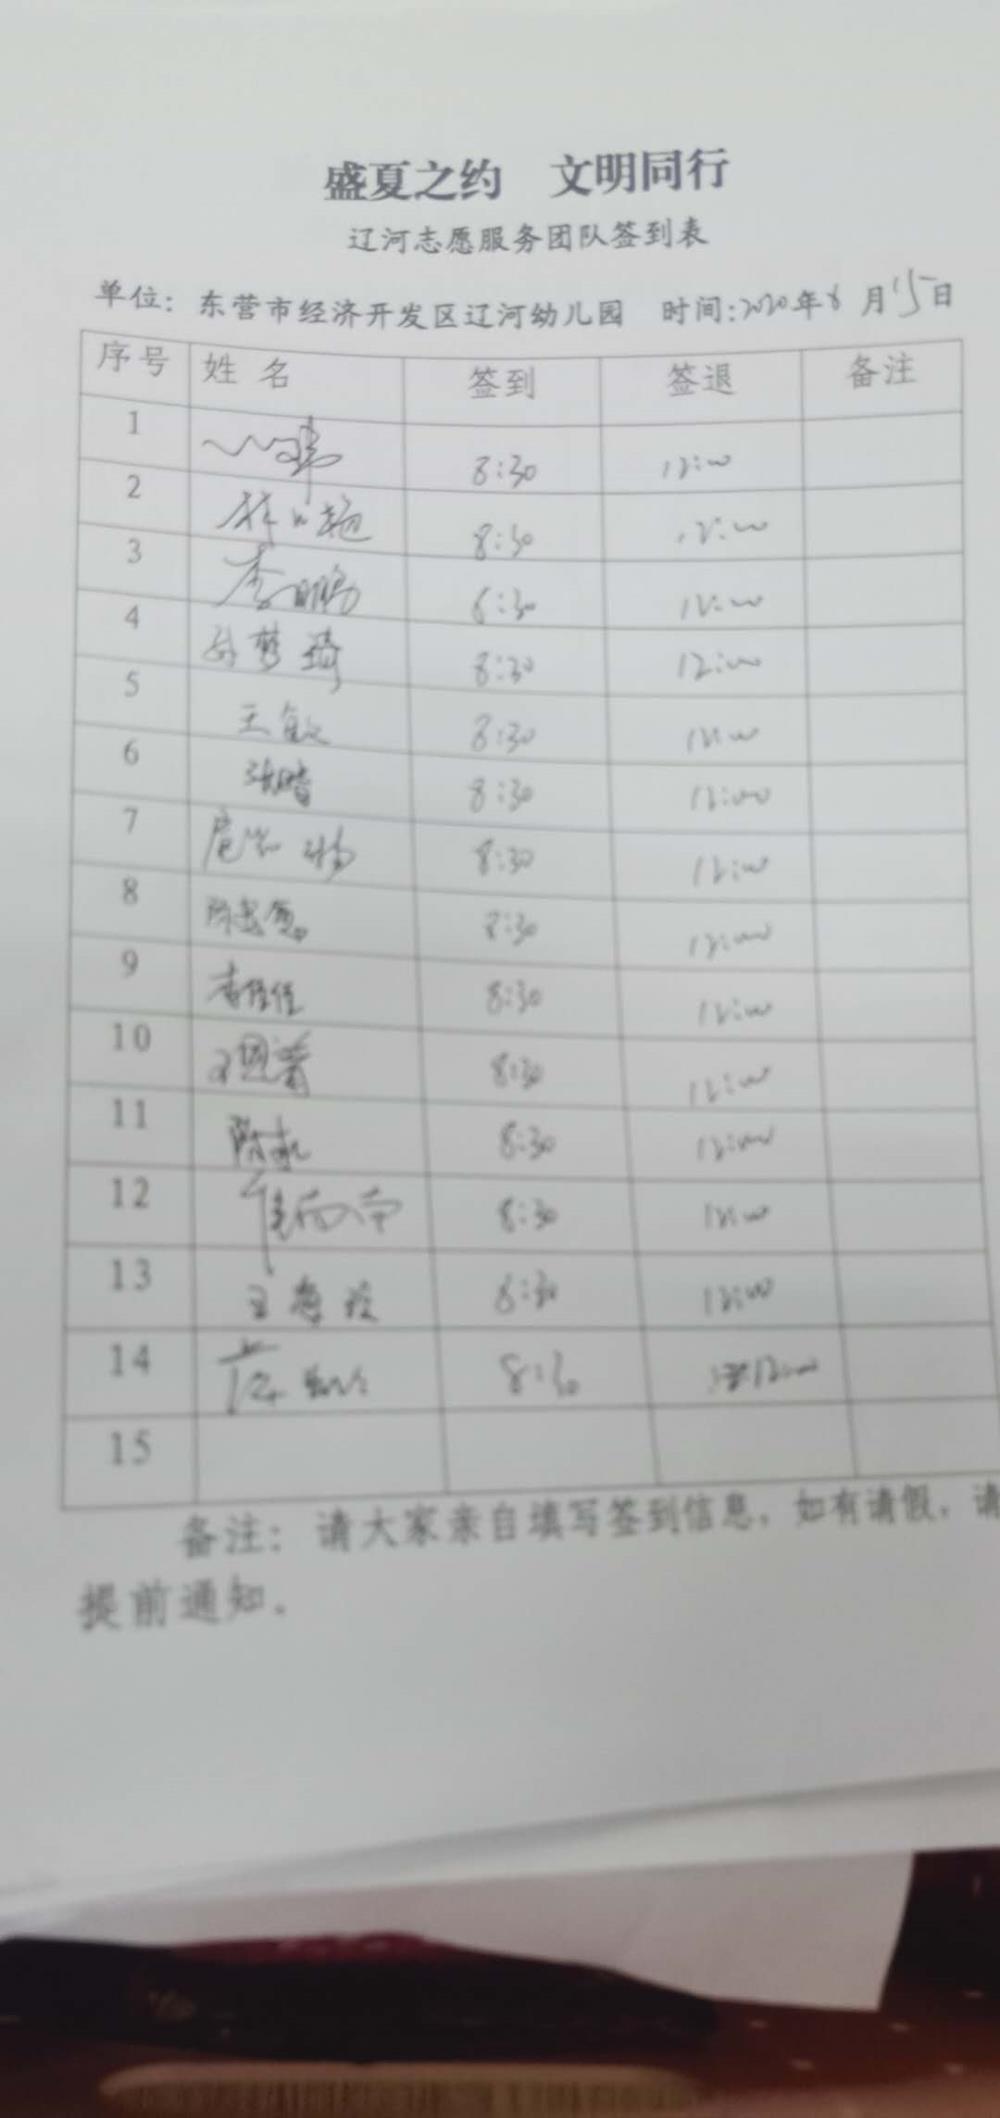 盛夏之约 文明同行
辽河志愿服务团队签到表
单位：东营市经济开发区辽河幼儿园 时间:2020年8月15日
序号 姓名 签到 签退 备注
1 8:30 12:00
2 8:30 12:00
3 李鹏 8:30 12:00
4 孙梦琦 8:30 12:00
5 王敏 8:30 12:00
6 张晴 8:30 12:00
7 8:30 12:00
8 8:30 12:00
9 李佳佳 8:30 12:00
10 8:30 12:00
11 8:30 12:00
12 8:30 12:00
13 8:30 12:00
14 8:30 12:00
15
备注：请大家亲自填写签到信息，如有请假，请
提前通知。